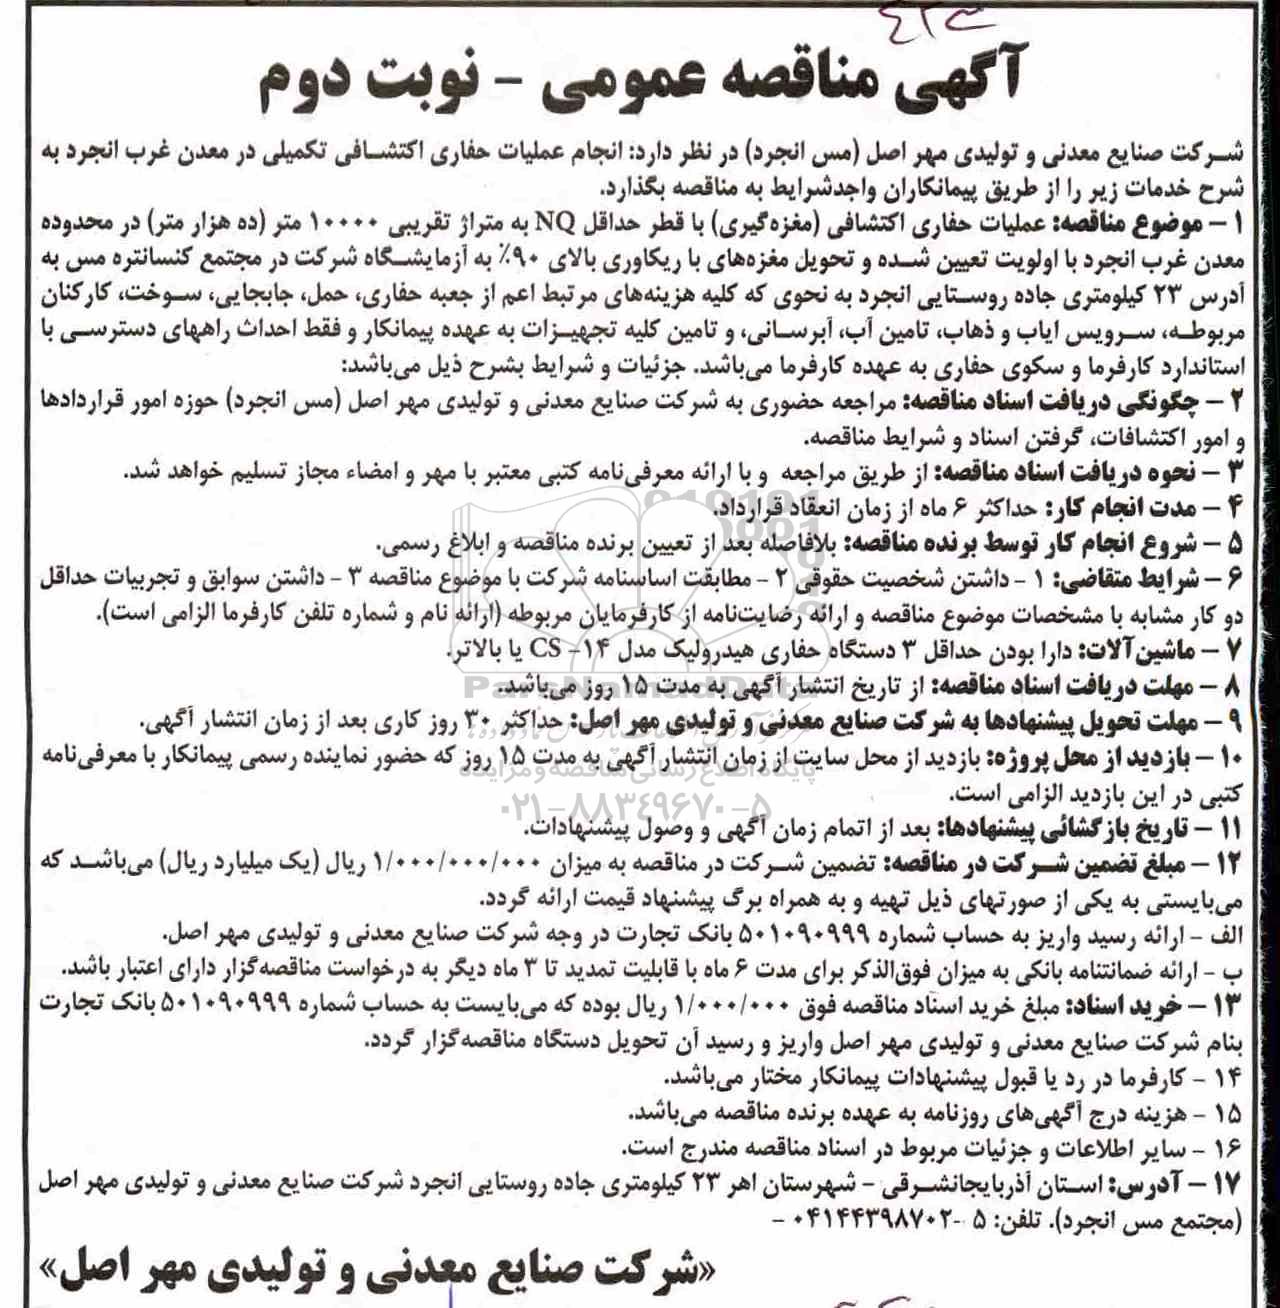 آگهی مناقصه عمومی - نوبت دوم
شرکت صنایع معدنی و تولیدی مهر اصل (مس انجرد) در نظر دارد: انجام عملیات حفاری اکتشافی تکمیلی در معدن غرب انجرد به
شرح خدمات زیر را از طریق پیمانکاران واجدشرایط به مناقصه بگذارد.
۱ - موضوع مناقصه: عملیات حفاری اکتشافی (مغزه‌گیری) با قطر حداقل NQ به متراژ تقریبی ۱۰۰۰۰ متر (ده هزار متر) در محدوده
معدن غرب انجرد با اولویت تعیین شده و تحویل مغزه‌های با ریکاوری بالای ۹۰٪ به آزمایشگاه شرکت در مجتمع کنسانتره مس به
آدرس ۲۳ کیلومتری جاده روستایی انجرد به نحوی که کلیه هزینه‌های مرتبط اعم از جعبه حفاری، حمل، جابجایی، سوخت، کارکنان
مربوطه، سرویس ایاب و ذهاب، تامین آب، آبرسانی، و تامین کلیه تجهیزات به عهده پیمانکار و فقط احداث راههای دسترسی با
استاندارد کارفرما و سکوی حفاری به عهده کارفرما می‌باشد. جزئیات و شرایط بشرح ذیل می‌باشد:
۲ - چگونگی دریافت اسناد مناقصه: مراجعه حضوری به شرکت صنایع معدنی و تولیدی مهر اصل (مس انجرد) حوزه امور قراردادها
و امور اکتشافات، گرفتن اسناد و شرایط مناقصه.
۳ - نحوه دریافت اسناد مناقصه: از طریق مراجعه و با ارائه معرفی‌نامه کتبی معتبر با مهر و امضاء مجاز تسلیم خواهد شد.
۴ - مدت انجام کار: حداکثر ۶ ماه از زمان انعقاد قرارداد.
۵ - شروع انجام کار توسط برنده مناقصه: بلافاصله بعد از تعیین برنده مناقصه و ابلاغ رسمی.
۶ - شرایط متقاضی: ۱ - داشتن شخصیت حقوقی ۲ - مطابقت اساسنامه شرکت با موضوع مناقصه ۳ - داشتن سوابق و تجربیات حداقل
دو کار مشابه با مشخصات موضوع مناقصه و ارائه رضایت‌نامه از کارفرمایان مربوطه (ارائه نام و شماره تلفن کارفرما الزامی است).
۷ - ماشین‌آلات: دارا بودن حداقل ۳ دستگاه حفاری هیدرولیک مدل ۱۴- CS یا بالاتر.
ParsNamadData
۸ - مهلت دریافت اسناد مناقصه: از تاریخ انتشار آگهی به مدت ۱۵ روز می‌باشد.
۹ - مهلت تحویل پیشنهادها به شرکت صنایع معدنی و تولیدی مهر اصل: حداکثر ۳۰ روز کاری بعد از زمان انتشار آگهی.
۱۰ - بازدید از محل پروژه: بازدید از محل سایت از زمان انتشار آگهی به مدت ۱۵ روز که حضور نماینده رسمی پیمانکار با معرفی‌نامه
پایگاه اطلاع رسانی مناقصه و مزایده
کتبی در این بازدید الزامی است.
۰۲۱-۸۸۳۴۹۶۷۰-۵
۱۱ - تاریخ بازگشائی پیشنهادها: بعد از اتمام زمان آگهی و وصول پیشنهادات.
۱۲ - مبلغ تضمین شرکت در مناقصه: تضمین شرکت در مناقصه به میزان ۱/۰۰۰/۰۰۰/۰۰۰ ریال (یک میلیارد ریال) می‌باشد که
می‌بایستی به یکی از صورتهای ذیل تهیه و به همراه برگ پیشنهاد قیمت ارائه گردد.
الف - ارائه رسید واریز به حساب شماره ۵۰۱۰۹۰۹۹۹ بانک تجارت در وجه شرکت صنایع معدنی و تولیدی مهر اصل.
ب - ارائه ضمانتنامه بانکی به میزان فوق‌الذکر برای مدت ۶ ماه با قابلیت تمدید تا ۳ ماه دیگر به درخواست مناقصه‌گزار دارای اعتبار باشد.
۱۳ - خرید اسناد: مبلغ خرید اسناد مناقصه فوق ۱/۰۰۰/۰۰۰ ریال بوده که می‌بایست به حساب شماره ۵۰۱۰۹۰۹۹۹ بانک تجارت
بنام شرکت صنایع معدنی و تولیدی مهر اصل واریز و رسید آن تحویل دستگاه مناقصه‌گزار گردد.
۱۴ - کارفرما در رد یا قبول پیشنهادات پیمانکار مختار می‌باشد.
۱۵ - هزینه درج آگهی‌های روزنامه به عهده برنده مناقصه می‌باشد.
۱۶ - سایر اطلاعات و جزئیات مربوط در اسناد مناقصه مندرج است.
۱۷ - آدرس: استان آذربایجانشرقی - شهرستان اهر ۲۳ کیلومتری جاده روستایی انجرد شرکت صنایع معدنی و تولیدی مهر اصل
(مجتمع مس انجرد). تلفن: ۵ -۰۴۱۴۴۳۹۸۷۰۲ -
«شرکت صنایع معدنی و تولیدی مهر اصل»